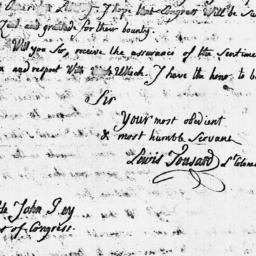 I hope that Congress will be
and grateful for their bounty.
Will you Sir, receive the assurance of the Sentime
and respect With Which. I have the honor to b
Sir
Your most obedient
& most humble Servant
Lewis Tousard Lt Colone
John Jay
of Congress.